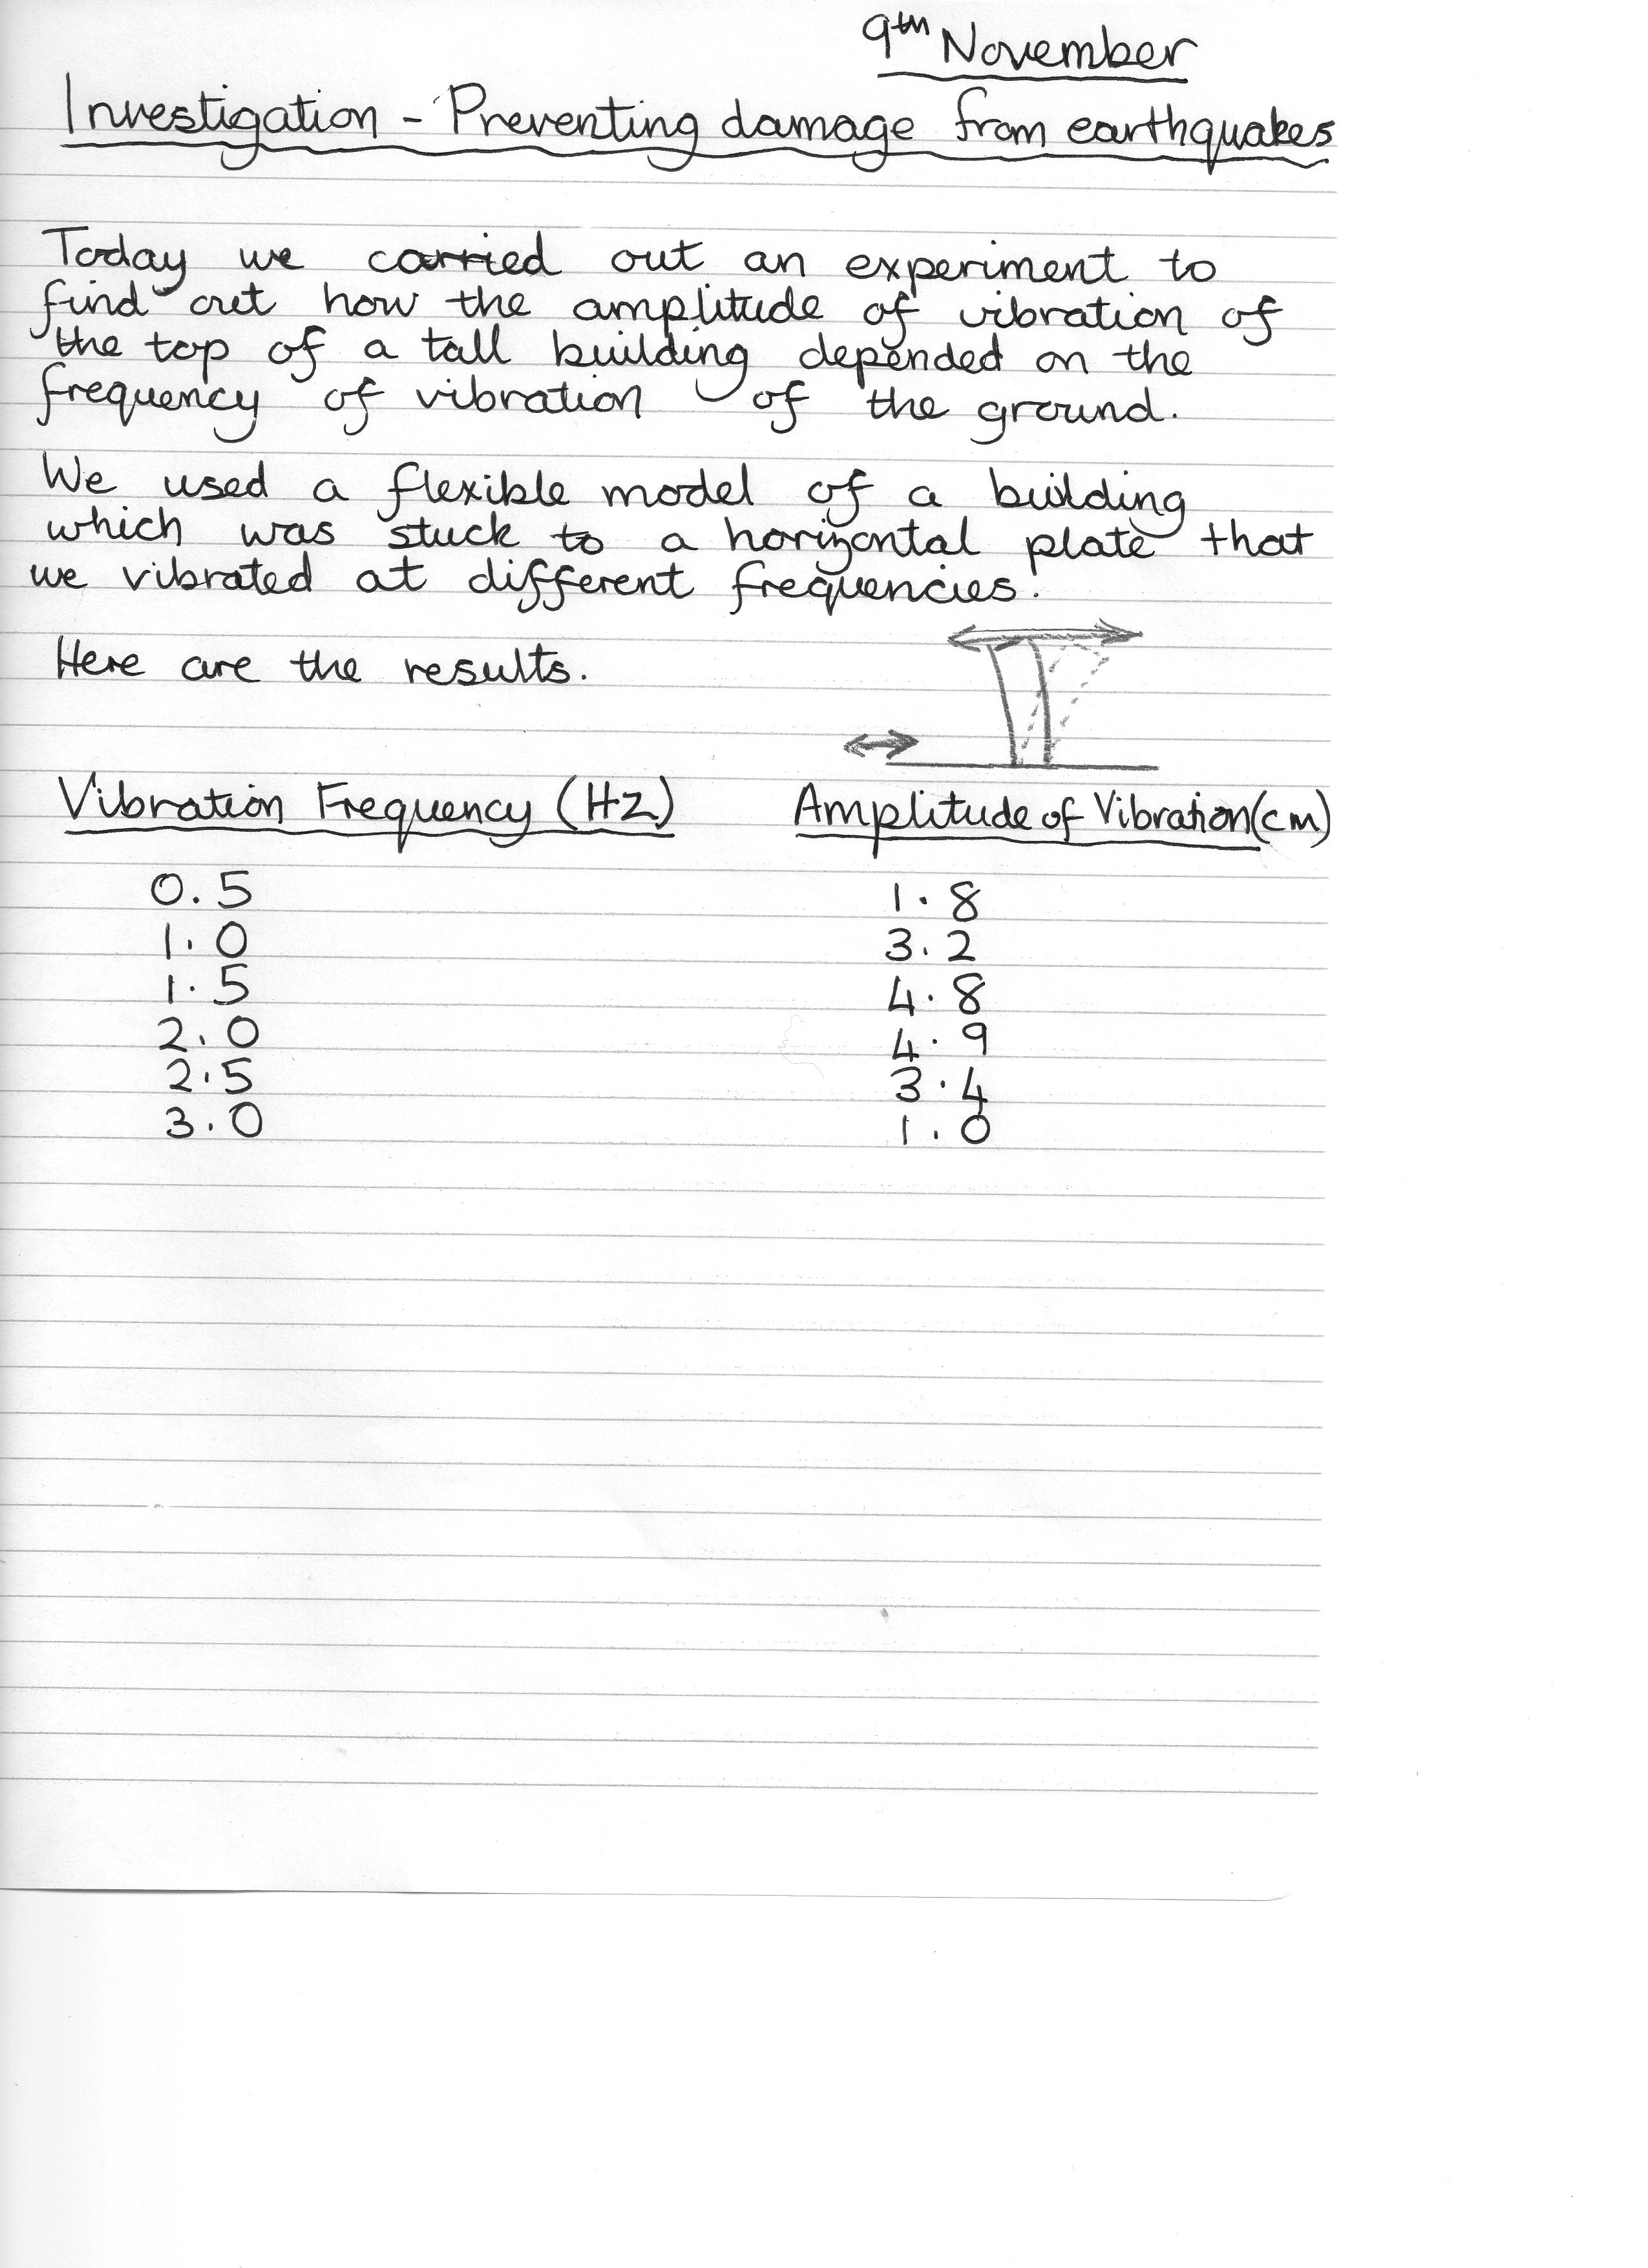 9th November
Investigation - Preventing damage from earthquakes
Today we carried out an experiment to
find out how the amplitude of vibration of
the top of a tall building depended on the
frequency of vibration of the ground.
We used a flexible model of a building
which was stuck to a horizontal plate that
we vibrated at different frequencies.
Here are the results.
Vibration Frequency (Hz) Amplitude of Vibration (cm)
0.5 1.8
1.0 3.2
1.5 4.8
2.0 4.9
2.5 3.4
3.0 1.0